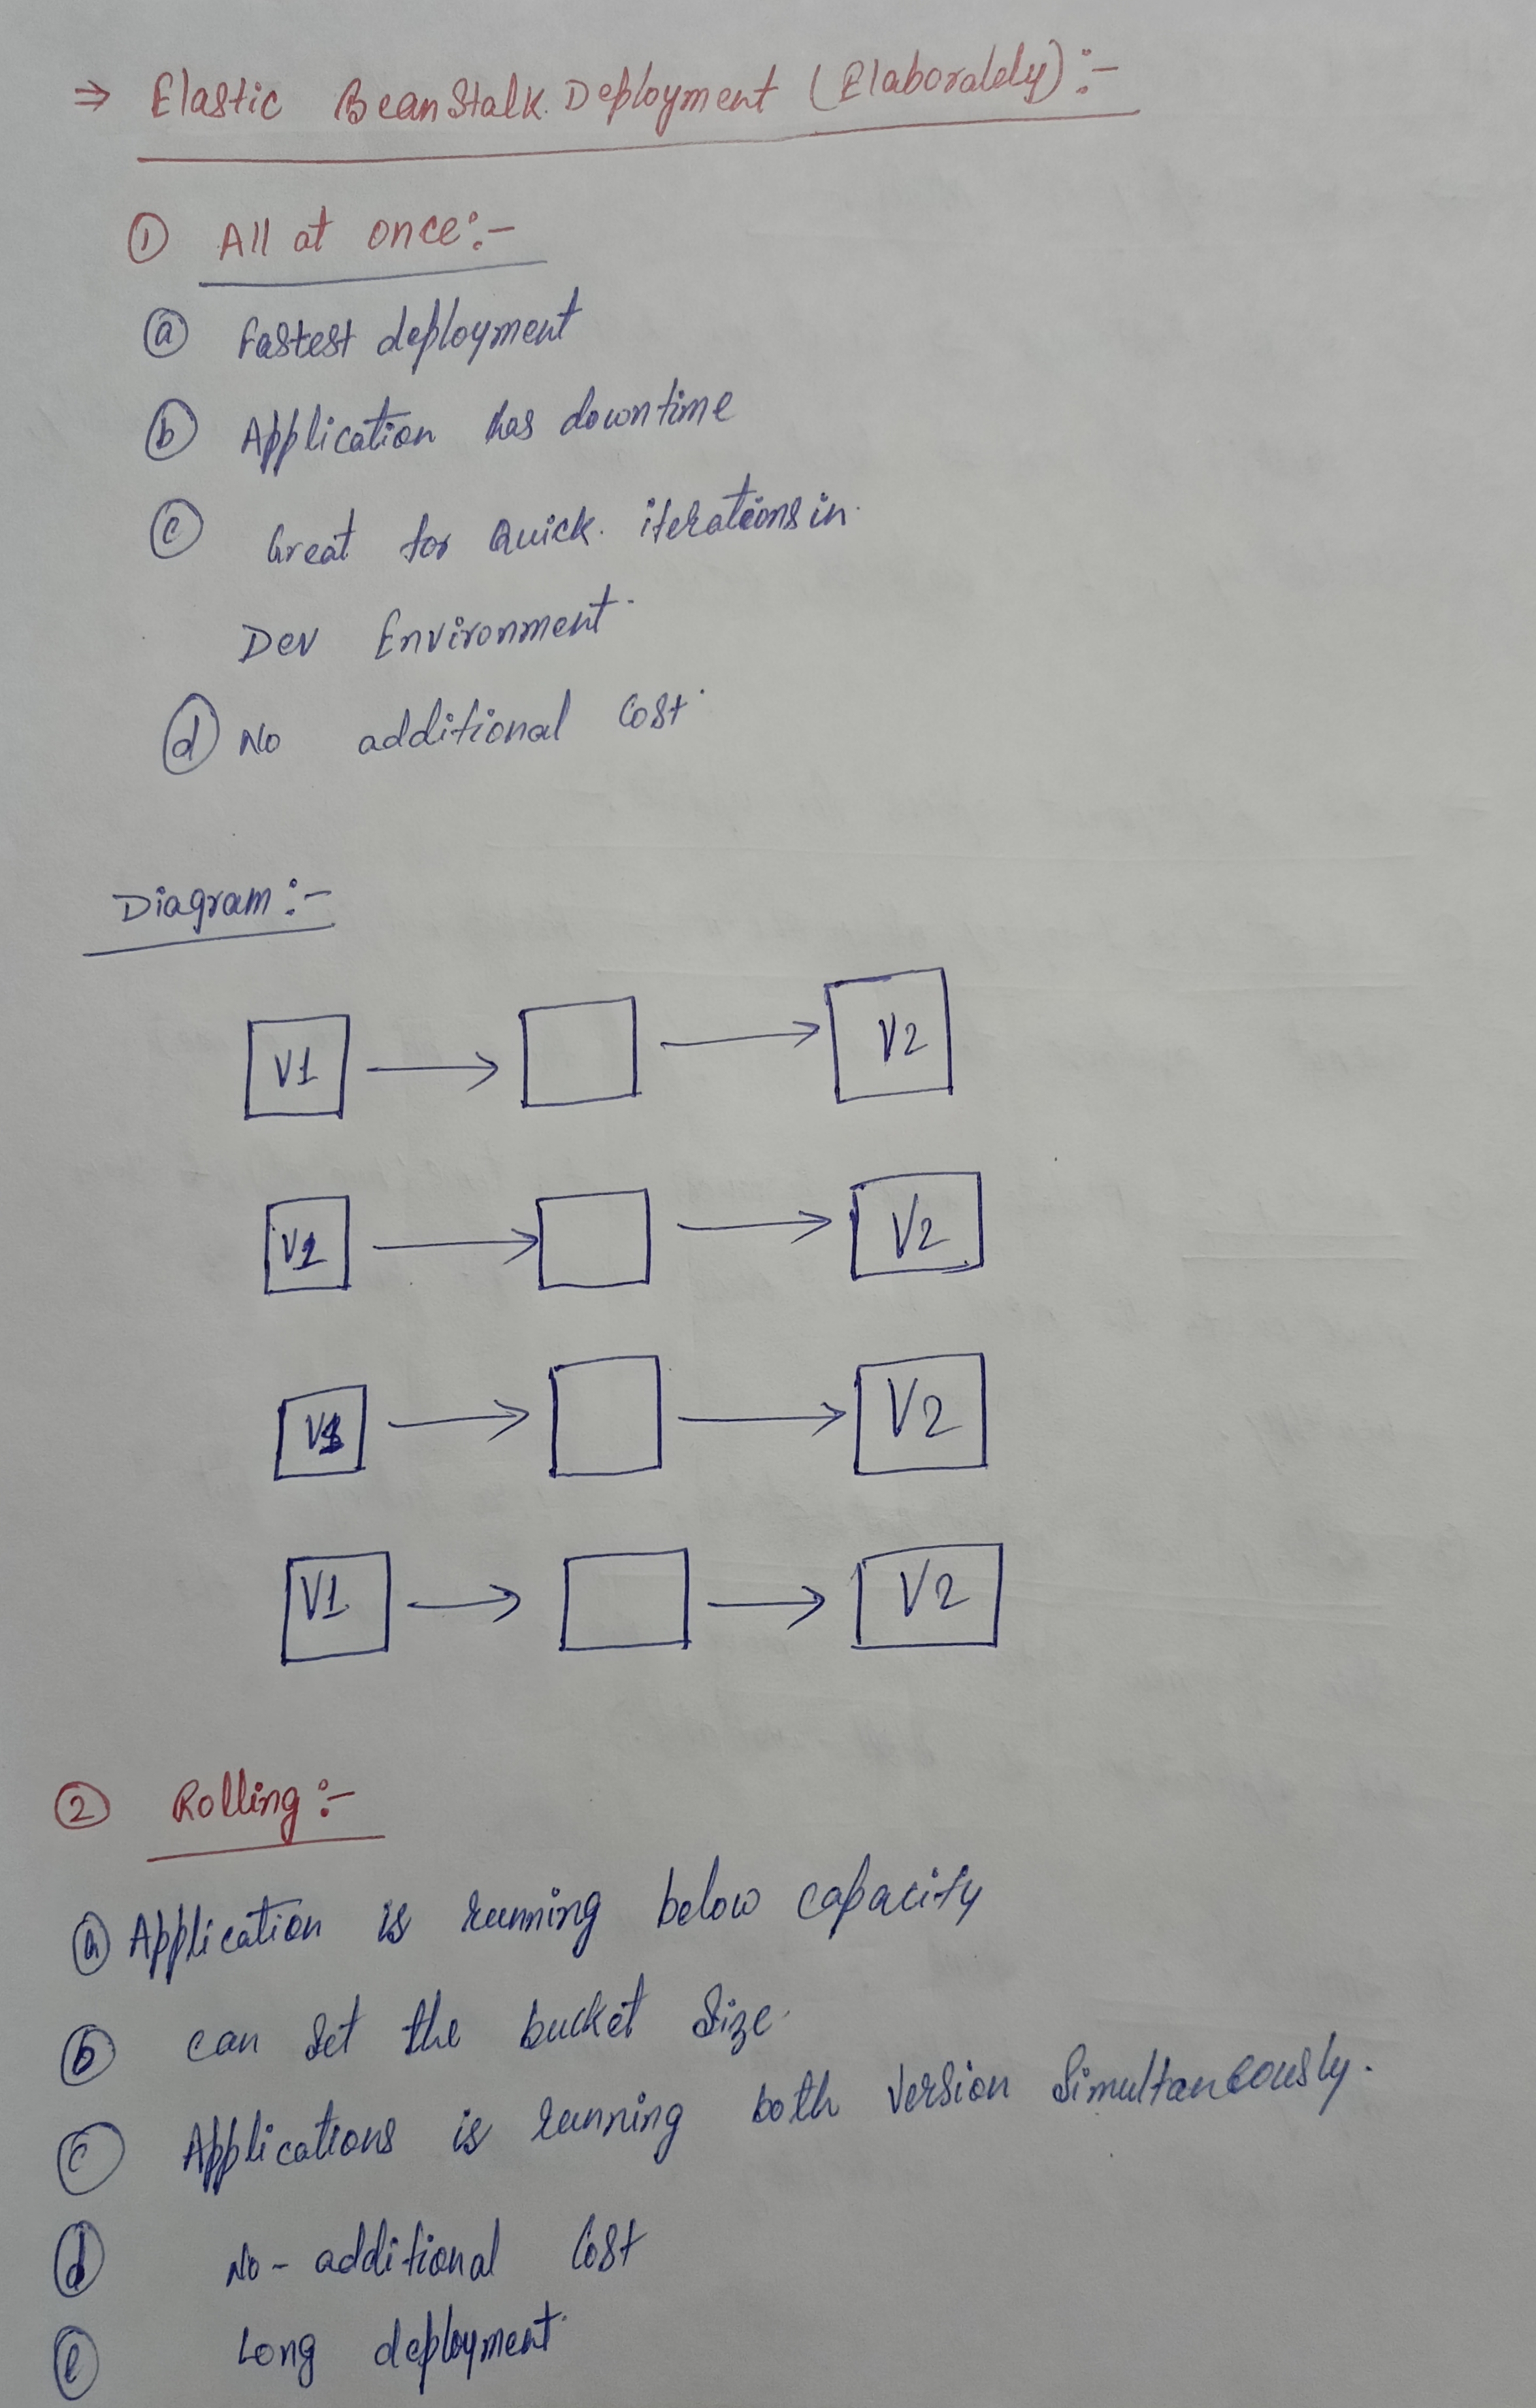 ⇒ Elastic BeanStalk Deployment (Elaborately):-
① All at once:-
ⓐ Fastest deployment
ⓑ Application has downtime
ⓒ Great for Quick iterations in
Dev Environment.
ⓓ No additional Cost.
Diagram:-
V1 → → V2
V1 → → V2
V1 → → V2
V1 → → V2
② Rolling:-
ⓐ Application is running below capacity
ⓑ can Set the bucket Size.
ⓒ Applications is running both Version Simultaneously.
ⓓ No- additional Cost
ⓔ Long deployment.